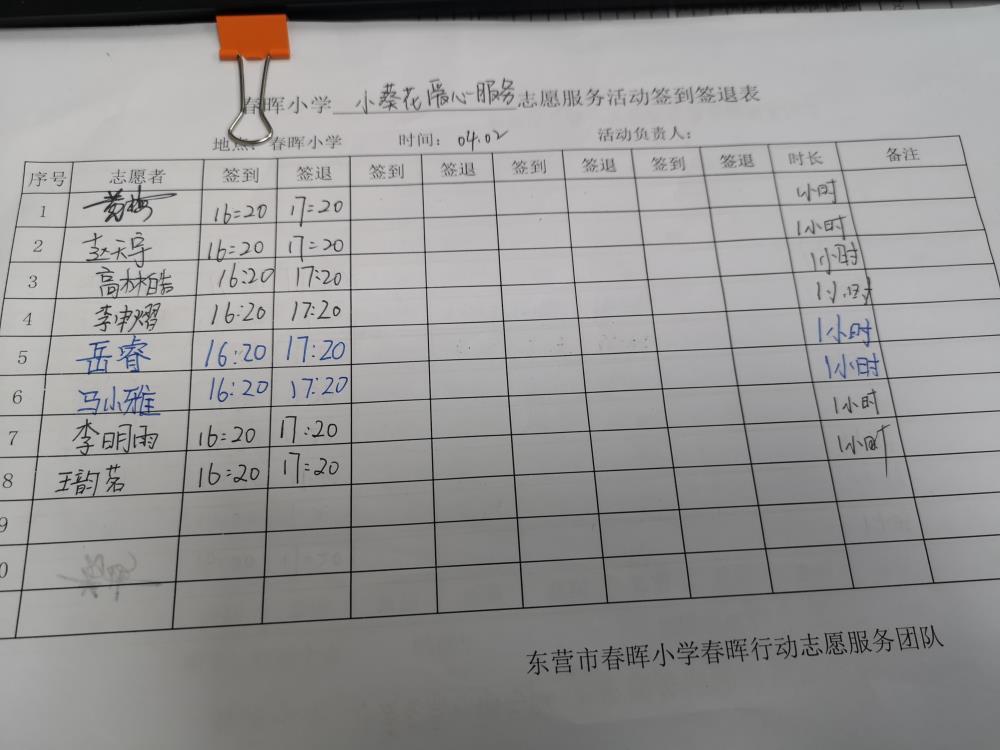 春晖小学 小葵花爱心服务 志愿服务活动签到签退表
地点：春晖小学 时间：04.02 活动负责人：
序号 志愿者 签到 签退 签到 签退 签到 签退 签到 签退 时长 备注
1 黄梅 16:20 17:20 1小时
2 赵天宇 16:20 17:20 1小时
3 高林皓 16:20 17:20 1小时
4 李申熠 16:20 17:20 1小时
5 岳睿 16:20 17:20 1小时
6 马小雅 16:20 17:20 1小时
7 李明雨 16:20 17:20 1小时
8 王韵茗 16:20 17:20 1小时
9
0
东营市春晖小学春晖行动志愿服务团队